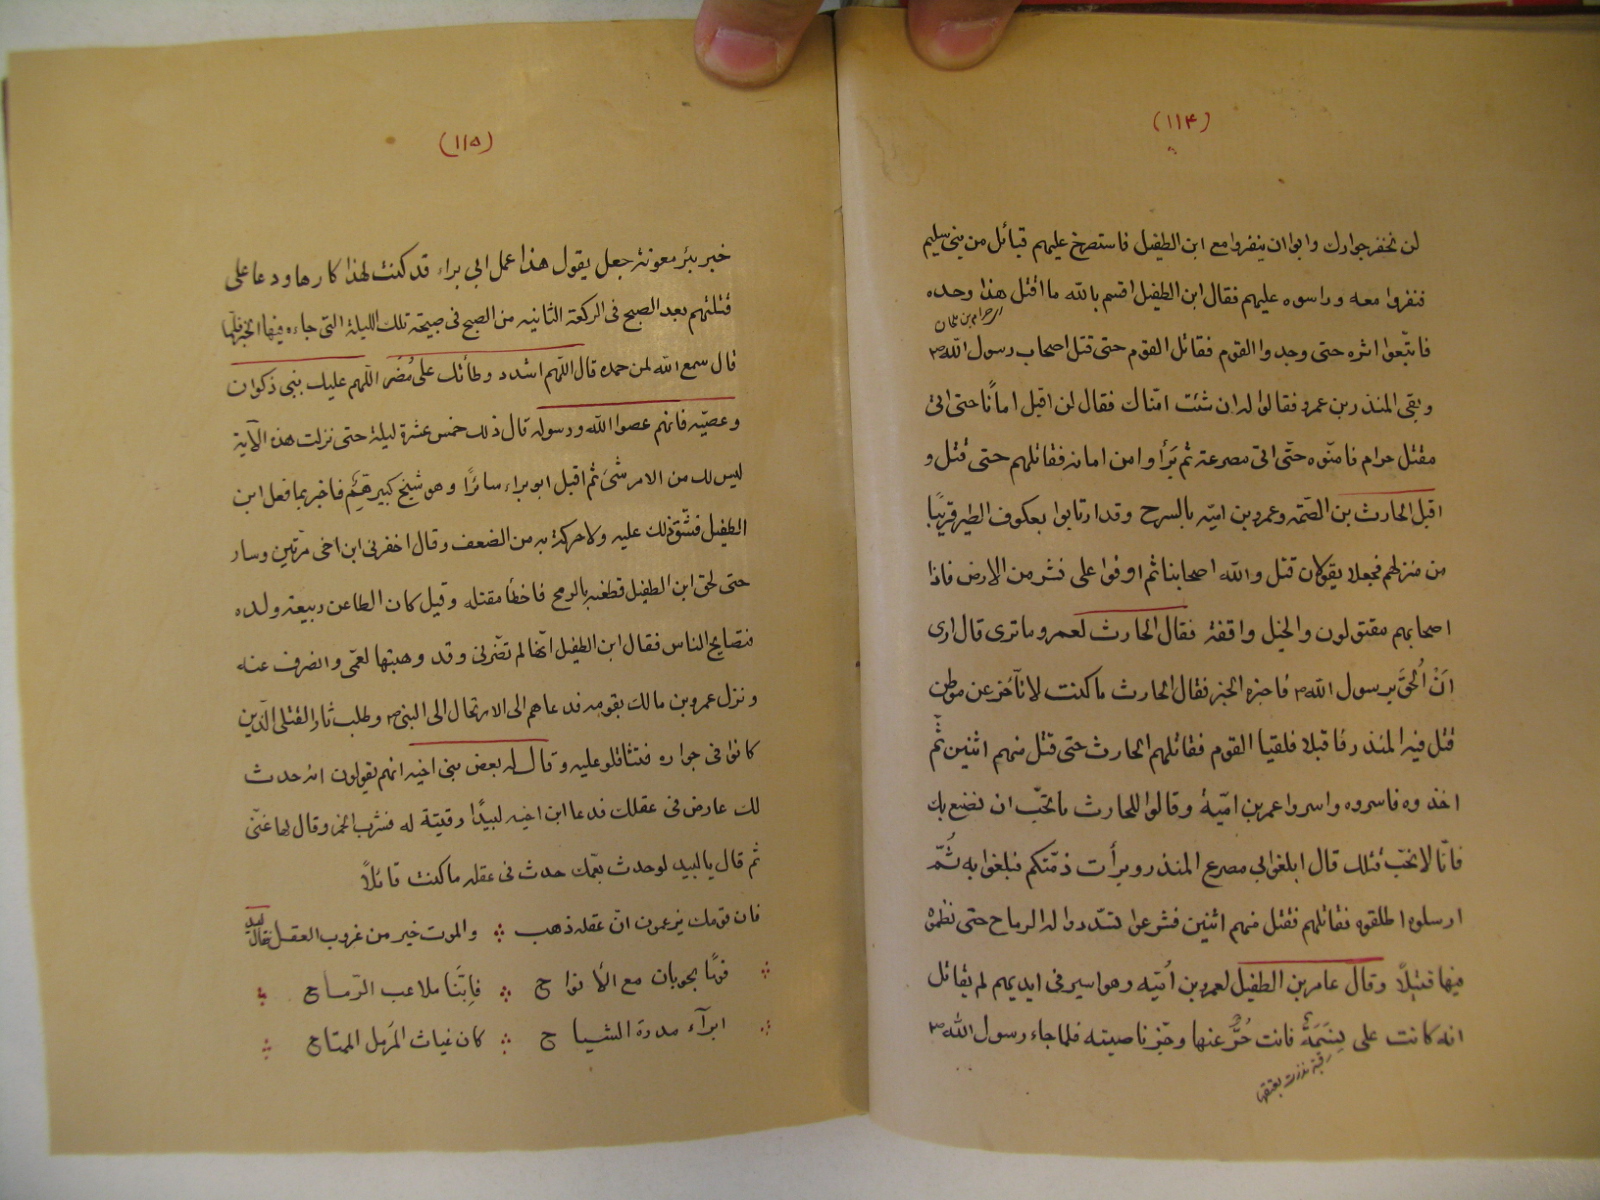 (١١۴)
لن نخفر جوارك وابوا ان ينفروا مع ابن الطفيل فاستصرخ عليهم قبائل من بني سليم
فنفروا معه وراسوه عليهم فقال ابن الطفيل اقسم بالله ما اقتل هذا وحده
اى حرام بن ملحان
فاتبعوا اثره حتى وجدوا القوم فقاتل القوم حتى قتل اصحاب رسول الله ص
وبقى المنذر بن عمرو فقالوا له ان شئت امناك فقال لن اقبل امانًا حتى اتى
مقتل حرام فامنّوه حتّى اتى مصرعه ثم برأوا من امانه فقاتلهم حتى قُتل و
اقبل الحارث بن الصّمه وعمرو بن اميّه بالسرح وقد ارتابوا بعكوف الطير قريبًا
من منزلهم فجعلا يقولان قتل والله اصحابنا ثم اوفوا على نشز من الارض فاذا
اصحابهم مقتولون والخيل واقفة فقال الحارث لعمرو ما ترى قال ارى
اَنْ اُلحق برسول الله ص فاخبره الخبر فقال الحارث ما كنت لاتأخر عن موطن
قُتل فيه المنذر فاقبلا فلقيا القوم فقاتلهم الحارث حتى قتل منهم اثنين ثم
اخذوه فاسروه واسروا عمر بن اميّة وقالوا للحارث ما تحبّ ان نصنع بك
فانّا لا نحبّ قتلك قال ابلغوني مصرع المنذر وبرأت ذمّتكم فبلغوا به ثُمّ
ارسلوه اطلقوه فقاتلهم فقتل منهم اثنين فشرعوا تسدّدوا له الرماح حتى نظموه
فيها قتيلًا وقال عامر بن الطفيل لعمرو بن اُميّه وهو اسير فى ايديهم لم يقاتل
انه كانت على نسَمَةٌ فانت حُرٌّ عنها وجَزّ ناصيته فلما جاء رسول الله ص
رقبة نذرت بعتقها
(١١۵)
خبر بئر معونة جعل يقول هذا عمل ابي براء قد كنت لهذا كارها ودعا على
قتلتهم بعد الصبح فى الركعة الثانيه من الصبح فى صبيحة تلك الليلة التى جاءه فيها الخبر فلمّا
قال سمع الله لمن حمده قال اللهم اشدد وطأتك على مُضَر اللّهم عليك ببنى ذكوان
وعصيّه فانهم عصوا الله ورسوله قال ذلك خمس عشرة ليلة حتى نزلت هذه الآية
ليس لك من الامر شيئ ثم اقبل ابو براء سائرًا وهو شيخ كبير هَمٌّ فاخبر بما فعل ابن
الطفيل فشّق ذلك عليه ولا حركة به من الضعف وقال اخفرنى ابن اخى مرّتين وسار
حتى لحق ابن الطفيل فطعنه بالرمح فاخطأ مقتله وقيل كان الطاعن ربيعة ولده
فتصايح الناس فقال ابن الطفيل انّها لم تضرّنى وقد وهبتها لعمّى وانصرف عنه
ونزل عمرو بن مالك بقومه فدعاهم الى الارتحال الى النبى ص وطلب ثار القتلى الّذين
كانوا فى جواره فتثاقلوا عليه وقال له بعض بنى اخيه انهم يقولون انه حدث
لك عارض فى عقلك فدعا ابن اخيه لبيدًا وقينة له فشرب الخمر وقال لها غنّى
ثم قال يا لبيد لو حدث بعمّك حدث فى عقله ما كنت قائلًا
فان قومك يزعمون انّ عقله ذهب والموت خير من غروب العقل فقال لبيد
قومًا يجوبان مع الانواح فابّنا ملاعب الرّماح
ابرآء مدرة الشياح كان غياث المرمل الممتاح